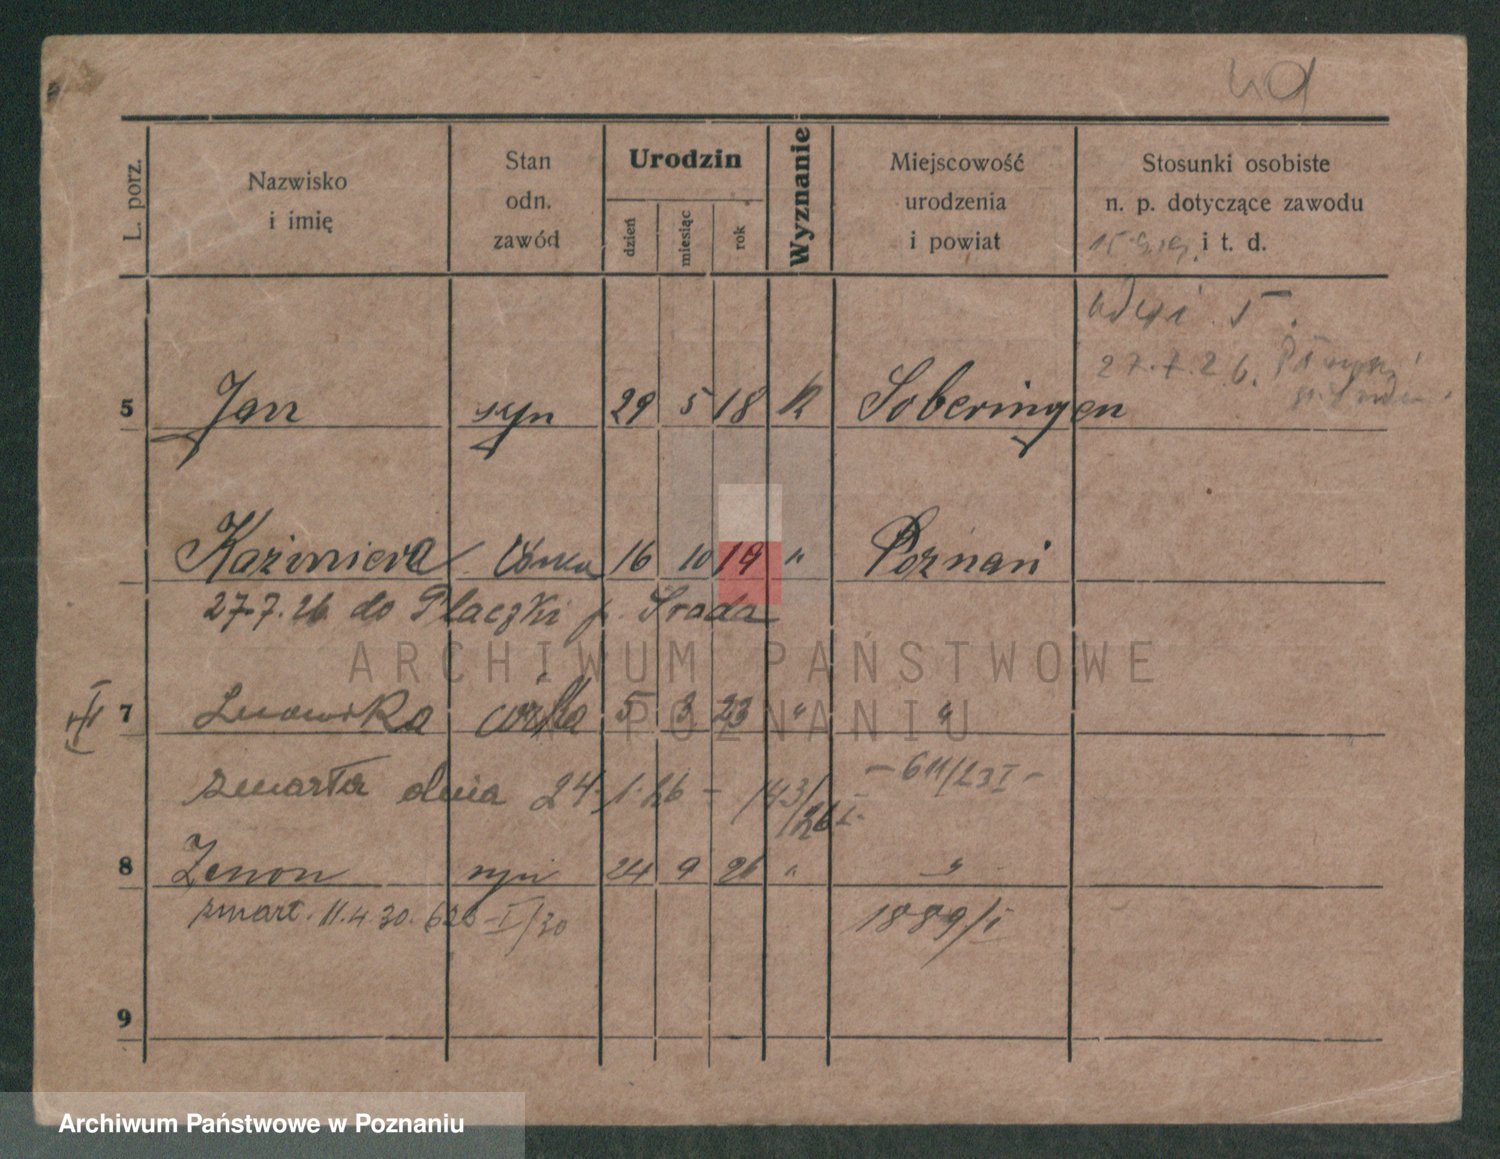 L. porz.
Nazwisko
i imię
Stan
odn.
zawód
Urodzin
dzień
miesiąc
rok
Wyznanie
Miejscowość
urodzenia
i powiat
Stosunki osobiste
n. p. dotyczące zawodu
i t. d.
27.7.26.
5 Jan syn 29 5 18 K Soberingen
Kaźmiera Córka 16 10 19 " Poznań
27.7.26 do Płaczki p. Środa
7 Ludwika córka 5 3 23 " "
zmarła dnia 24.1.26 – 143/26 I. – 611/23 I –
8 Zenon syn 24 9 26 " "
zmarł. 11.4.30. I/30 1889/I
9
ARCHIWUM PAŃSTWOWE
W POZNANIU
Archiwum Państwowe w Poznaniu